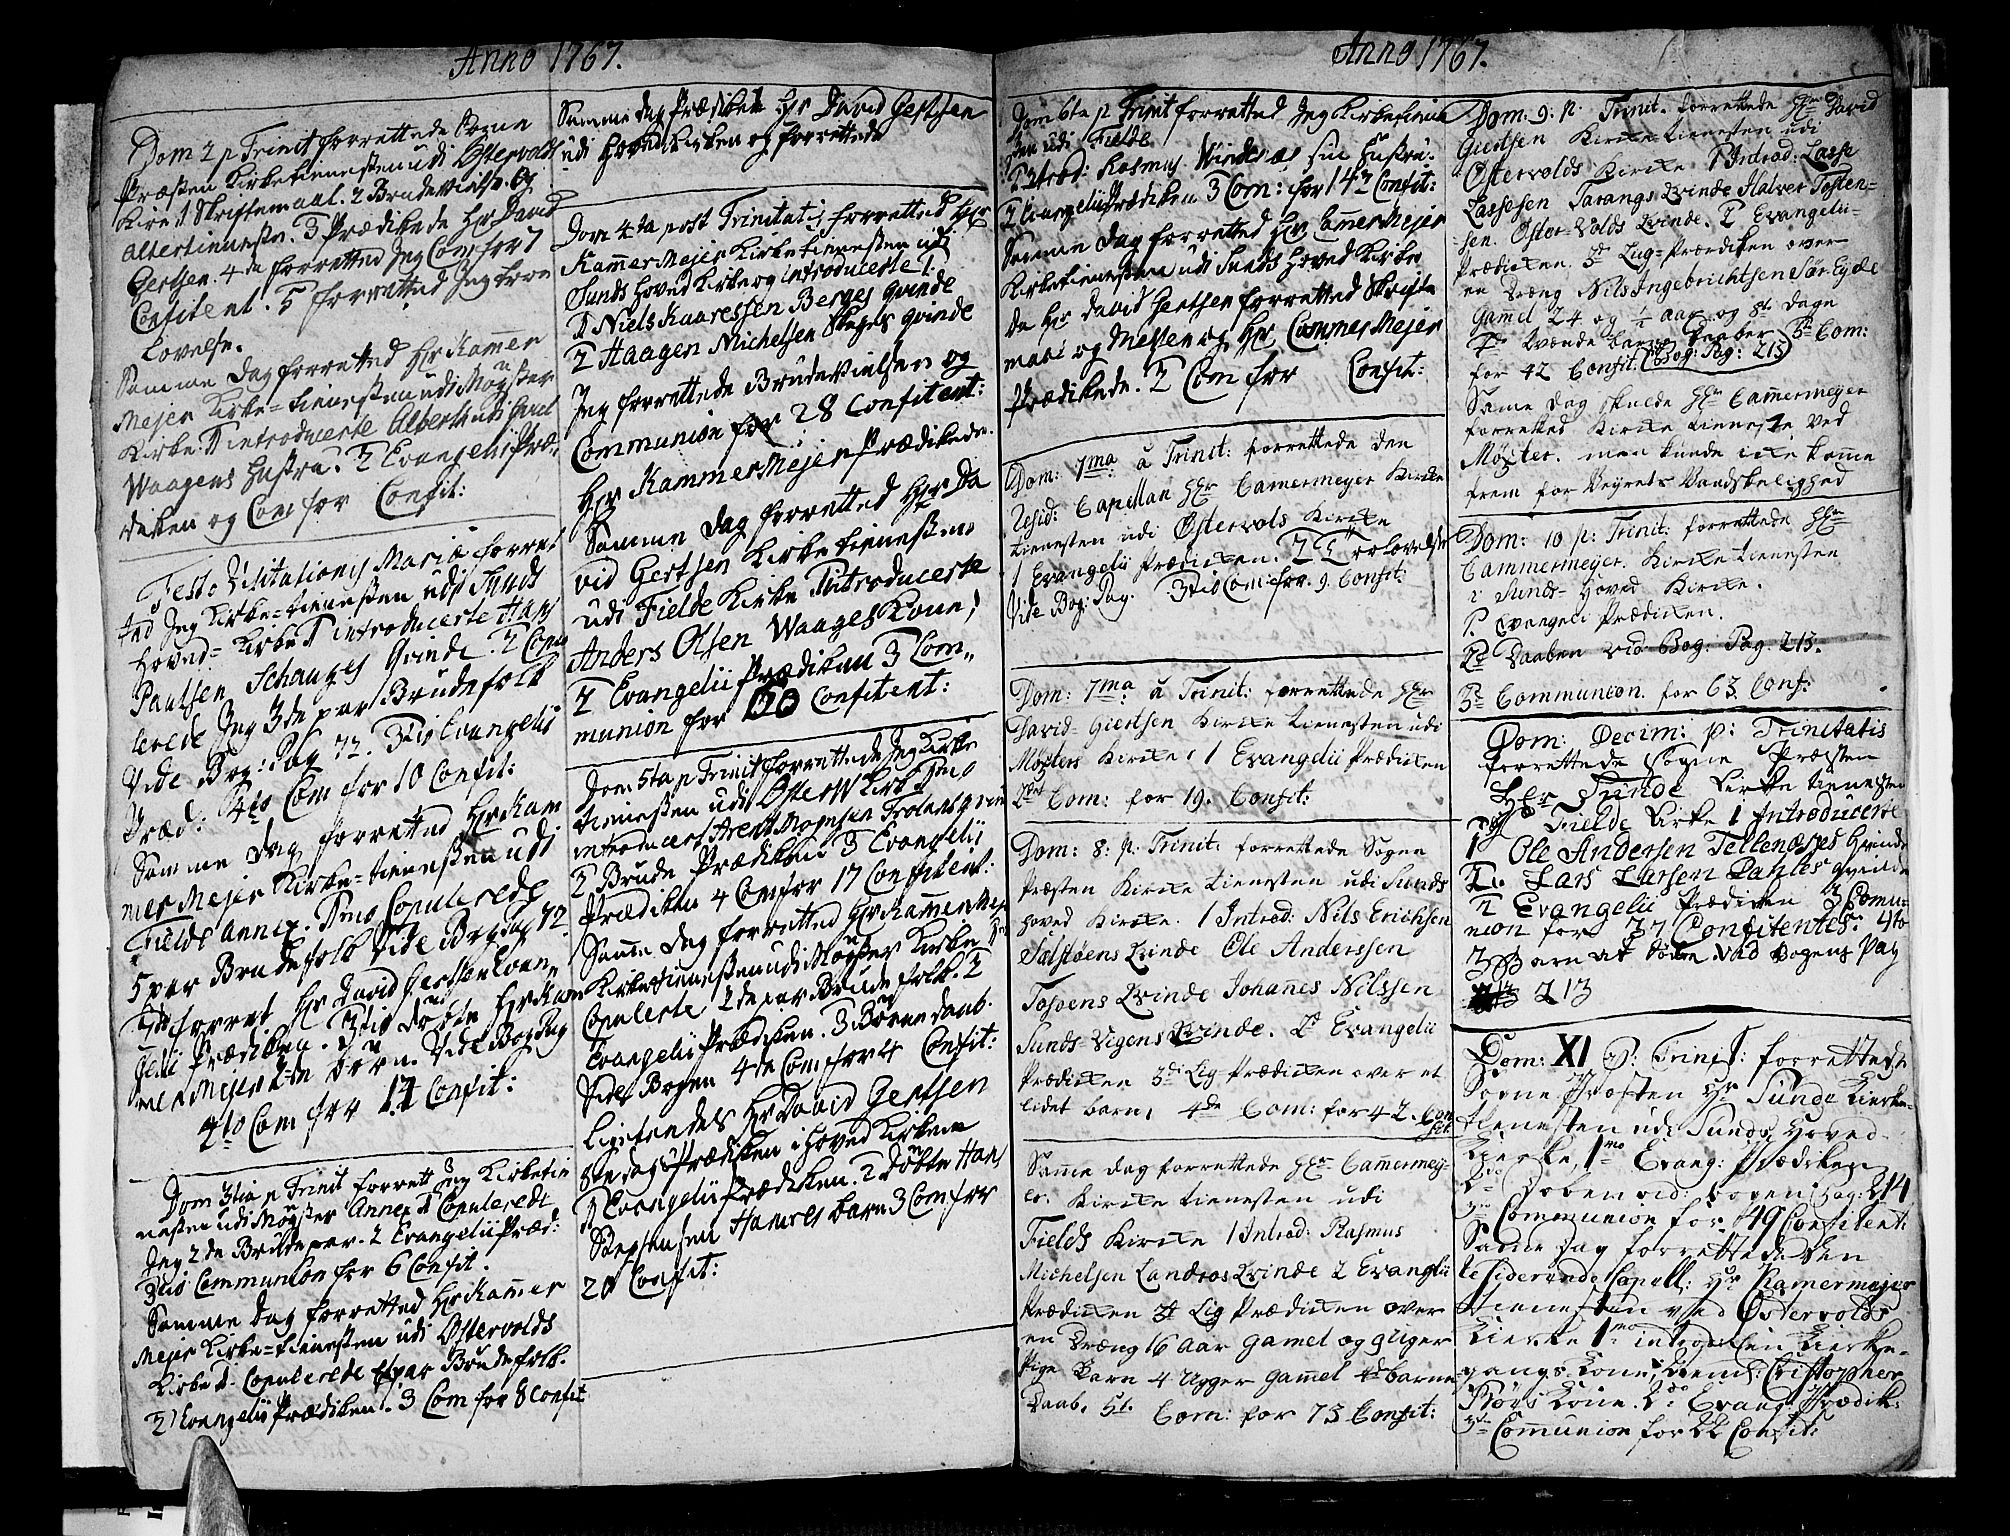 Anno 1767.
Dom 2 p Trinit forrettede Sogne
Præsten Kirketienesten udi Østervold
Kirke 1 Skriftemaal. 2 Brudevielse og
Altertienesten. 3 Prædikede Hr David
Gertsen. 4de forretted Jeg Com for 7
Confitent. 5 forretted Jeg Troe
Lovelse.
Samme Dag forretted Hr Kammer
Mejer Kirke=tienesten udi Møgster
Kirke. 1 introducerte Albert
Waagens Hustru. 2 Evangelii Præ,,
diken og Com for Confit:
Festo Visitationis Mariæ forret
ted Jeg Kirke=tienesten udi Sunds
Hoved=Kirke 1 introducerte Hans
Paulsen Schanges Qvinde. 2 Copu
lerede Jeg 3de par Brudefolk
Vide Bog: Pag 72. 3tio Evangelii
Præd: 4to Com for 10 Confit:
Samme Dag forretted Hr Kam
mer Mejer Kirke=tienesten udi
Fielde Annex. 1mo Copulerede
5 par Brudefolk Vide Bog Pag 72.
2do forret Hr David Gertsen Evan,,
gelii Prædiken. 3tio døbte Hr Kam
mer Mejer 2de børn. Vide Bog Pag
4to Com for 14 Confit:
Dom 3tia p Trinit forrett Jeg Kirketie
nesten udi Møgster Annex 1 Copuleredt
Jeg 2de Brudepar. 2 Evangelii Præd:
3tio Communion for 6 Confit.
Samme Dag forretted Hr Kammer
Mejer Kirke=tienesten udi Østervolds
Kirke 1. Copulerede par Brudefolk.
2 Evangelii Prædiken. 3 Com for 8 Confit
Samme dag Prædiket Hr David Gertsen
udi Hovedkirken og forrettede
Dom 4ta post Trinitatis forretted Hr
Kammer Mejer Kirketienesten udi
Sunds Hoved Kirke og introducerte 1.
1 Niels Kaaressen Berges qvinde
2 Haagen Michelsen Skages qvinde
Jeg forrettede Brudevielsen og
Communion for 28 Confitent:
Hr Kammer Mejer Prædikede.
Samme Dag forretted Hr Da
vid Gertsen Kirketienesten
udi Fielde Kirke 1 introducerte
Anders Olsen Waages Kone;
2 Evangelii Prædiken 3 Com,,
munion for 150 Confitent:
Dom 5ta p Trinit forrettede Jeg Kirke
tienesten udi Østerv Kirke 1mo
introducert Arent Mogensen Trolands qvin
2 Brude Prædiken 3 Evangelii
Prædiken 4 Com for 17 Confitent:
Samme Dag forretted Hr Kammer Mej
Kirketienesten udi Møgster Kirke
Copulerte 2de par Brudefolk. 2
Evangelii Prædiken. 3 Børne daab.
Vide Bogen 4de Com for 4 Confit:
Ligeledes Hr David Gertsen
Prædiken i Hoved Kirken
1 Evangelii Prædiken. 2 døbte Hans
Stephensen Hamres barn 3 Com for
20 Confit:
Anno 1767.
Dom 6ta p Trinit forretted Jeg Kirketiene
sten udi Fielde
1 Introd: Rasmus Windenæs sin Hustru.
2 Evangelii Prædiken 3 Com: for 143 Confit:
Samme Dag forretted Hr Camer Mejer
Kirketienesten udi Sunds Hoved Kirke
Da Hr David Gertsen forretted Skrifte
maal og Messen og Hr Cammer Mejer
Prædikede. 2 Com for Confit:
Dom: 7ma: â Trinit: forrettede den
Resid: Capellan Hr Camermeyer Kircke
tienesten udi Østervols Kircke
1 Evangelii Prædicken. 2 Trolovelse
Vide Bog: Pag. 3tio Com: for. 9. Confit:
Dom: 7ma: â Trinit: forrettede Hr
David=Giertsen Kircke tienesten udi
Møsters Kircke. 1 Evangelii Prædicken
2det Com: for 19. Confit:
Dom: 8: p: Trinit: forrettede Sogne
Præsten Kircke tienesten udi Sunds
Hoved Kircke. 1 Introd: Nils Erichsen
Selstøens Qvinde Ole Anderssen
Tofoens Qvinde Johanes Nilssen
Sunds=Vigens Qvinde. 2de Evangelii
Prædicken 3di Lig=Prædicken over et
lidet barn, 4de Com: for 42. Con
fit:
Samme dag forrettede Hr Camermey=
er. Kircke tienesten udi
Fields Kircke 1 Introd: Rasmus
Michelsen Landraas Qvinde 2 Evangelii
Prædicken 3t Lig Prædicken over
en Dræng 16 aar gamel og 9 Uger
Pige Barn 4 Uger gammel 4de barne
Daab. 5t. Com: for 73 Confit:
Dom: 9: p: Trinit: forrettede Hr David
Giertsen Kircke tienesten udi
Østervolds Kircke 1 Introd: Lasse
Lassesen Tarangs Qvinde Halver Tosten=
sen Øster=Volds Qvinde. 2 Evangelii=
Prædicken. 3de Lig=Prædicken over
en Dræng Nils Ingebrichtsen Sør Eyde
Gamel 24 og ½ aar og 8t Dage
4de tvænde Daaber 5te Com:
for 42 Confit. Bog: Pag: 213
Same Dag skulde Hr Camermeyer
forretted Kircke tieneste ved
Møster. men kunde icke komme
frem for Veyrets Vandskelighed
Dom: 10 p: Trinit: forrettede Hr
Cammermeyer. Kircke tienesten
i Sunds=Hoved Kircke.
1. Evangeli Prædicken.
2de Daaben vid Bog. Pag. 213.
3de Communion for 63 Conf:
Dom: Decim: p: Trinitatis
forrettede Sogne Præsten
Hr Sunde Kirke tienesten
Fielde Kirke 1 Introducerte
1 Ole Andersen Tellenæses qvinde
2. Lars Larsen Pahles qvinde
2 Evangelii Prædicken 3 Comu=
nion for 37 Confitentes: 4to
3 Barn at Døbe. vid Bogens Pag
213
Dom: XI p: Trinit: forrettede
Sogne Præsten Hr Sunde Kierke=
tienesten udi Sunds Hoved=
Kierke, 1mo Evang: Prædiken
2do Doben vid: bogen Pag: 214
3tio Communion for 49 Confitent:
Same Dag forrettede den
Residerende Capell: Hr Kamermeyer
tienesten ved Østervolds
Kierke 1mo introd: en Kierke=
gangs Kone, Nemb: Cristopher
Røes Kone. 2do Evang: Prædik:
3tio Communion for 22 Confit: